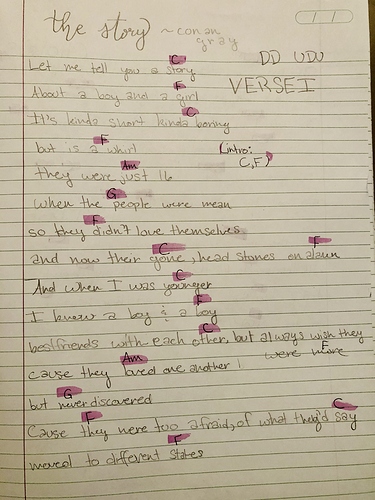 the story ~conan gray
DD UDU
C
Let me tell you a story
VERSE I
F
About a boy and a girl
C
It's kinda short kinda boring
F
but is a whirl
(intro:
C, F)
Am
they were just 16
G
when the people were mean
F
so they didn't love themselves
C F
and now their gone, head stones on a laun
C
And when I was younger
F
I knew a boy & a boy
C
bestfriends with each other, but always wish they
F
were more
Am
cause they loved one another
G
but never discovered
F C
Cause they were too afraid, of what they'd say
F
moved to different states